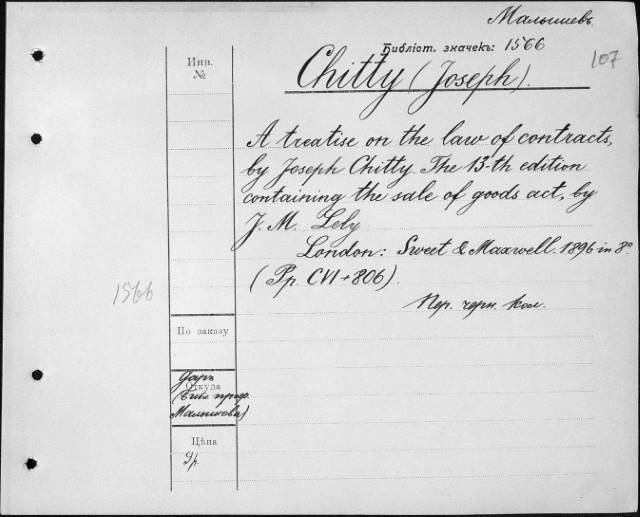 Малышевъ
Библіот. значекъ: 1566
107
Chitty (Joseph).
Инв.
№
A treatise on the law of contracts,
by Joseph Chitty. The 13-th edition
containing the sale of goods act, by
J. M. Lely
London: Sweet & Maxwell. 1896 in 8°
(Pp. CVI + 806).
1566
Пер. черн. кол.
По заказу
Даръ
Откуда
(Библ. проф.
Малышева)
Цѣна
9р.